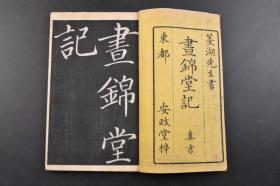 菱湖先生書
晝錦堂記
真書
東都
安政堂梓
晝錦堂
記